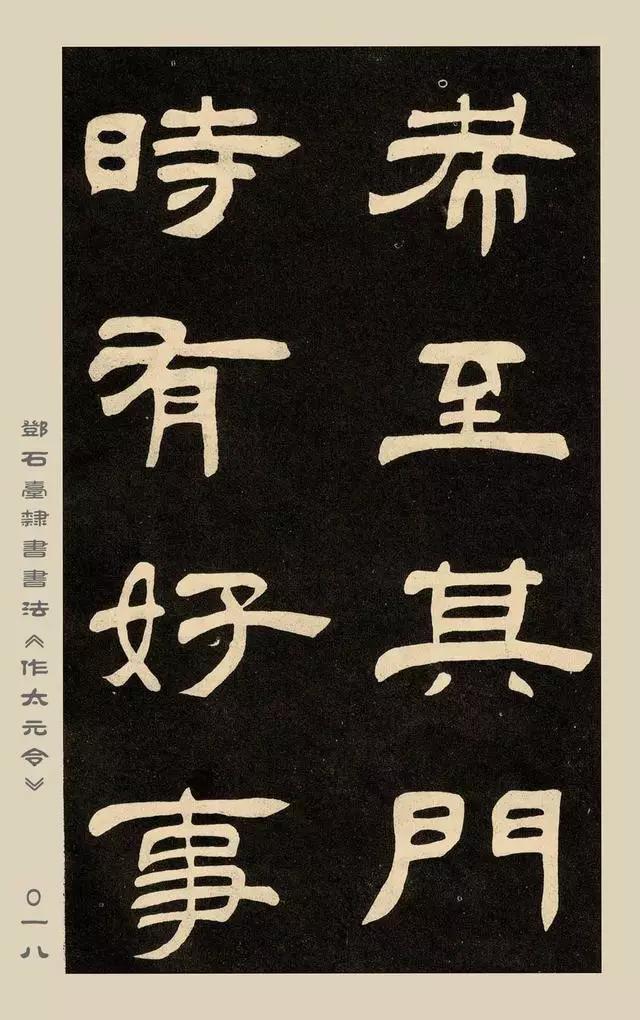 希至其門
時有好事
鄧石臺隸書書法《作太元令》
〇一八